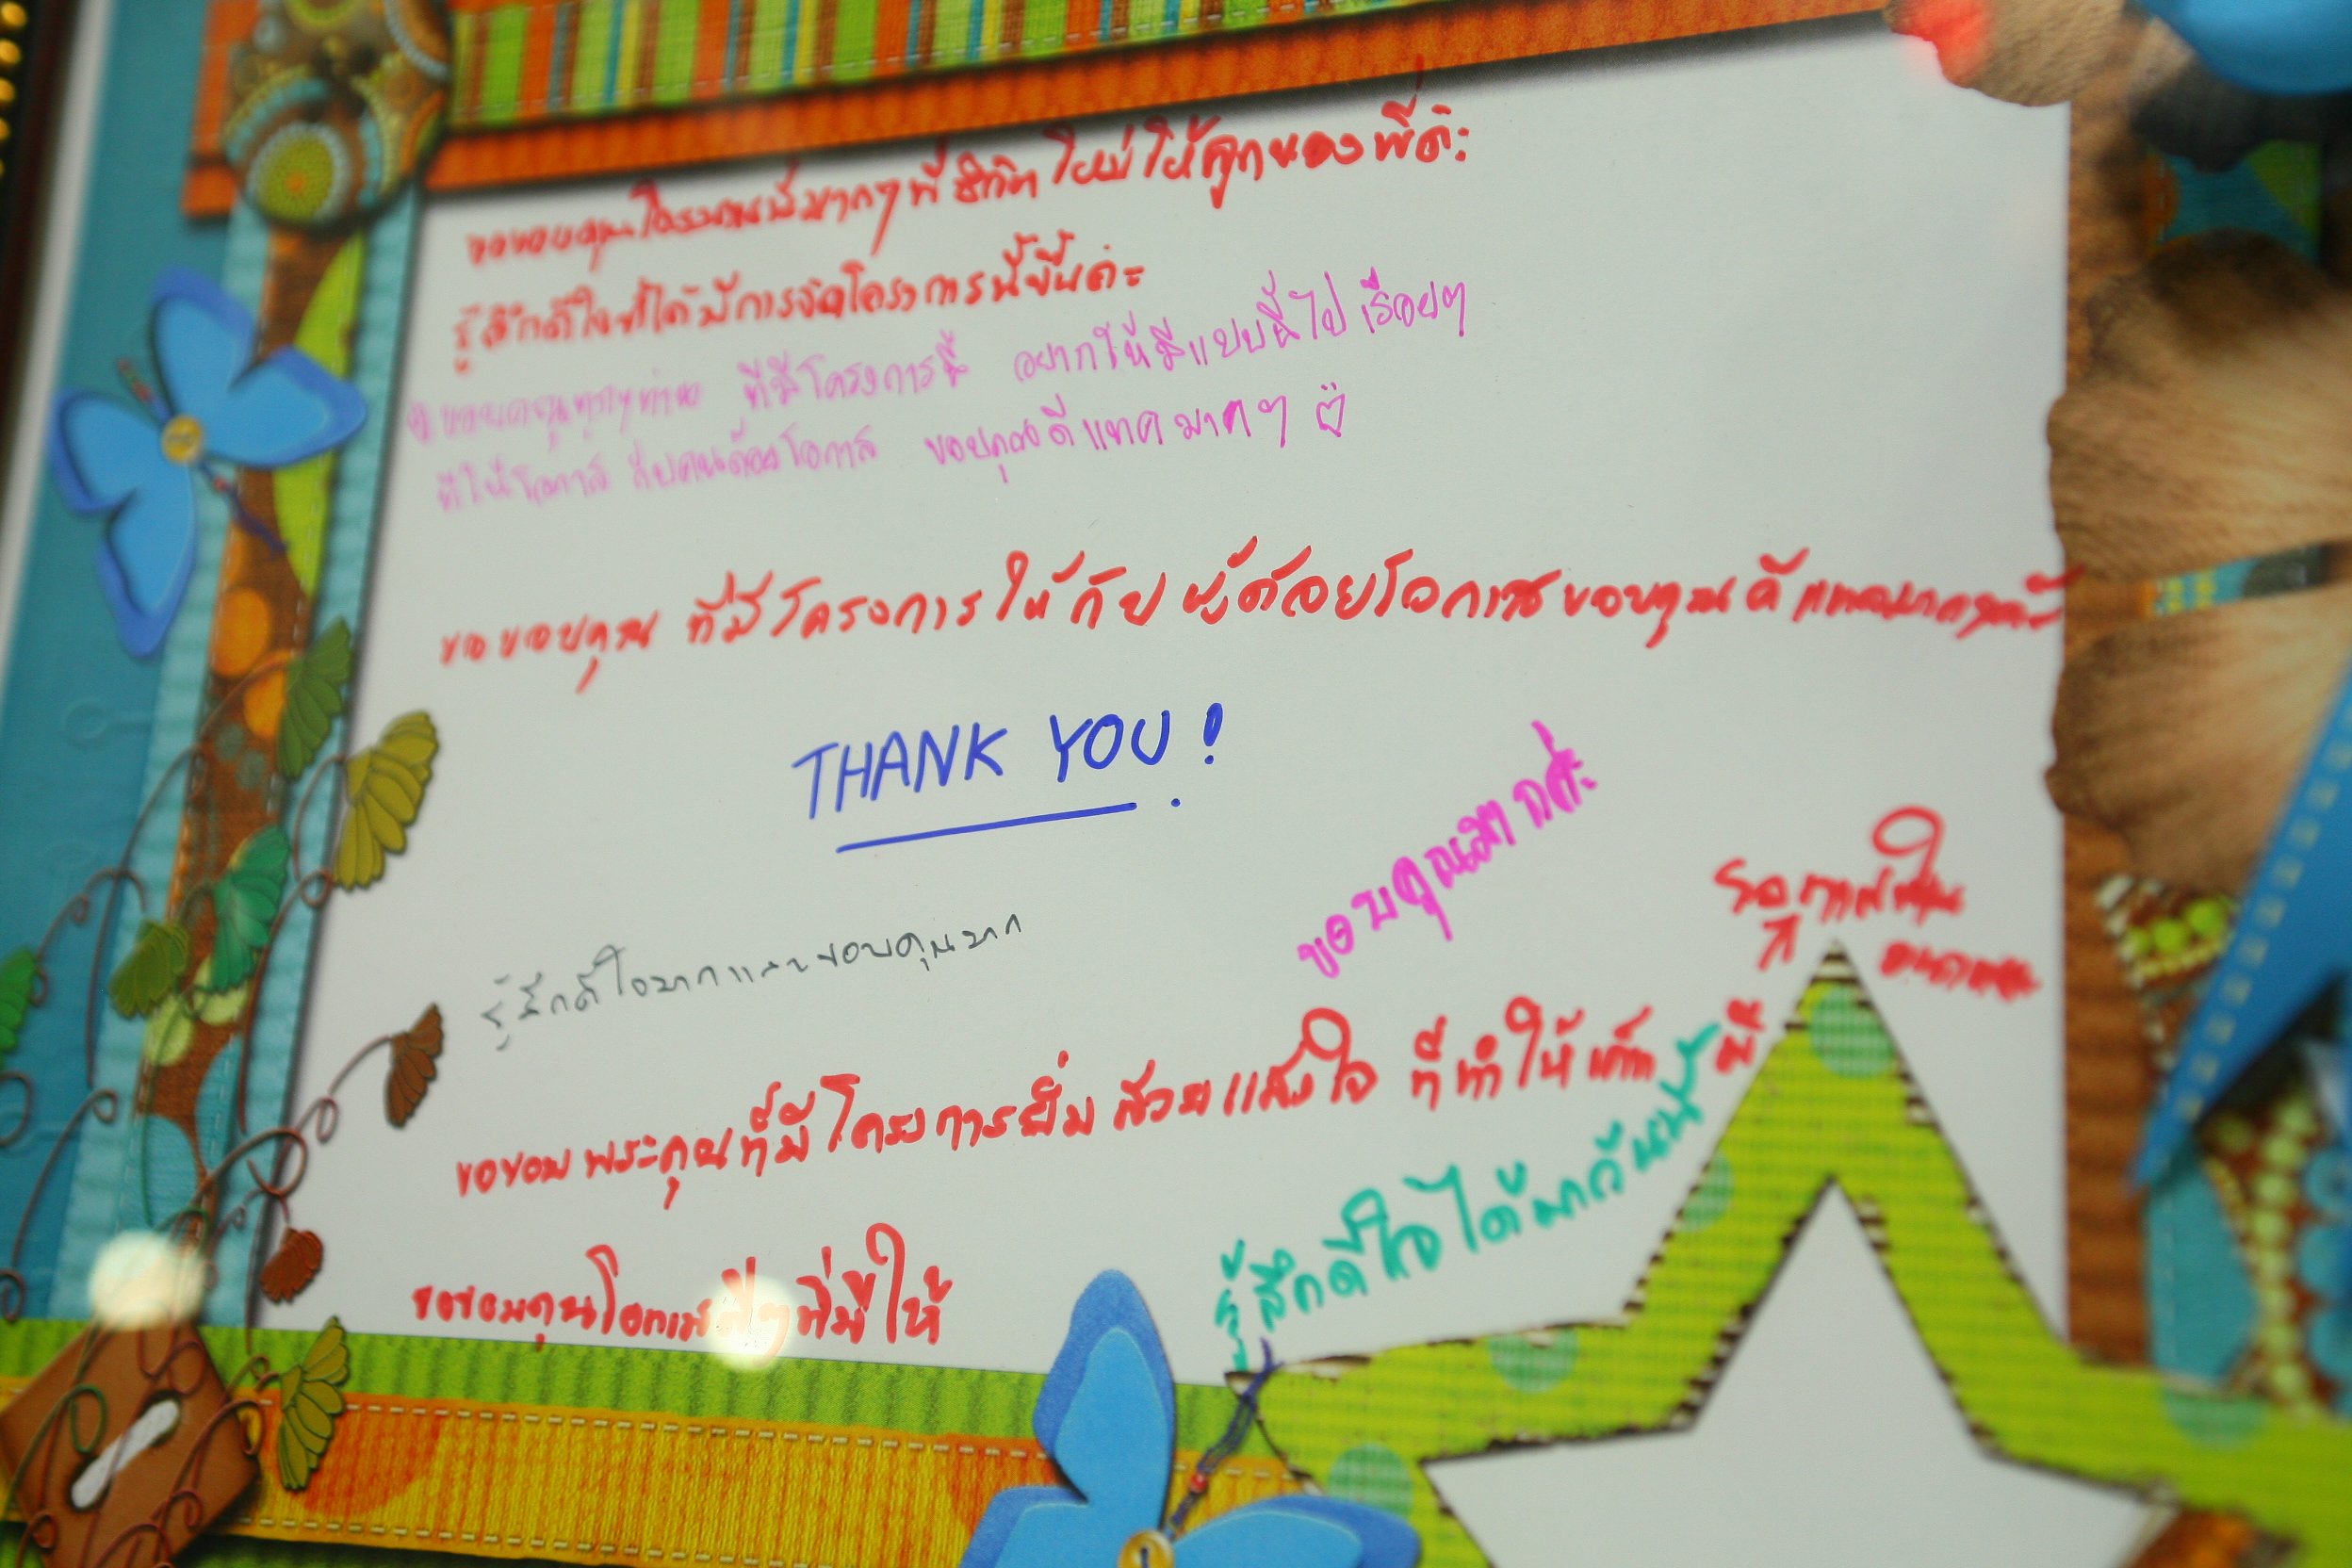 ขอขอบคุณโครงการนี้มากๆที่ชีวิตใหม่ให้ลูกของพี่ค่ะ
รู้สึกดีใจที่ได้มีการจัดโครงการนี้ขึ้นค่ะ
ขอบคุณทุกๆท่าน ที่มีโครงการนี้ อยากให้มีแบบนี้ไปเรื่อยๆ
ที่ให้โอกาส กับคนด้อยโอกาส ขอบคุณดีแทคมากๆ
ขอขอบคุณ ที่มีโครงการให้กับ ผู้ด้อยโอกาสขอบคุณดีแทคมากๆค่ะ
THANK YOU!
ขอบคุณมากค่ะ
รู้สึกดีใจมากและขอบคุณมาก
ขอขอบพระคุณที่มีโครงการยิ้มสวยเสียงใส ที่ทำให้เด็กมี
รู้สึกดีใจได้มาวันนี้
ขอขอบคุณโอกาสดีๆที่มีให้